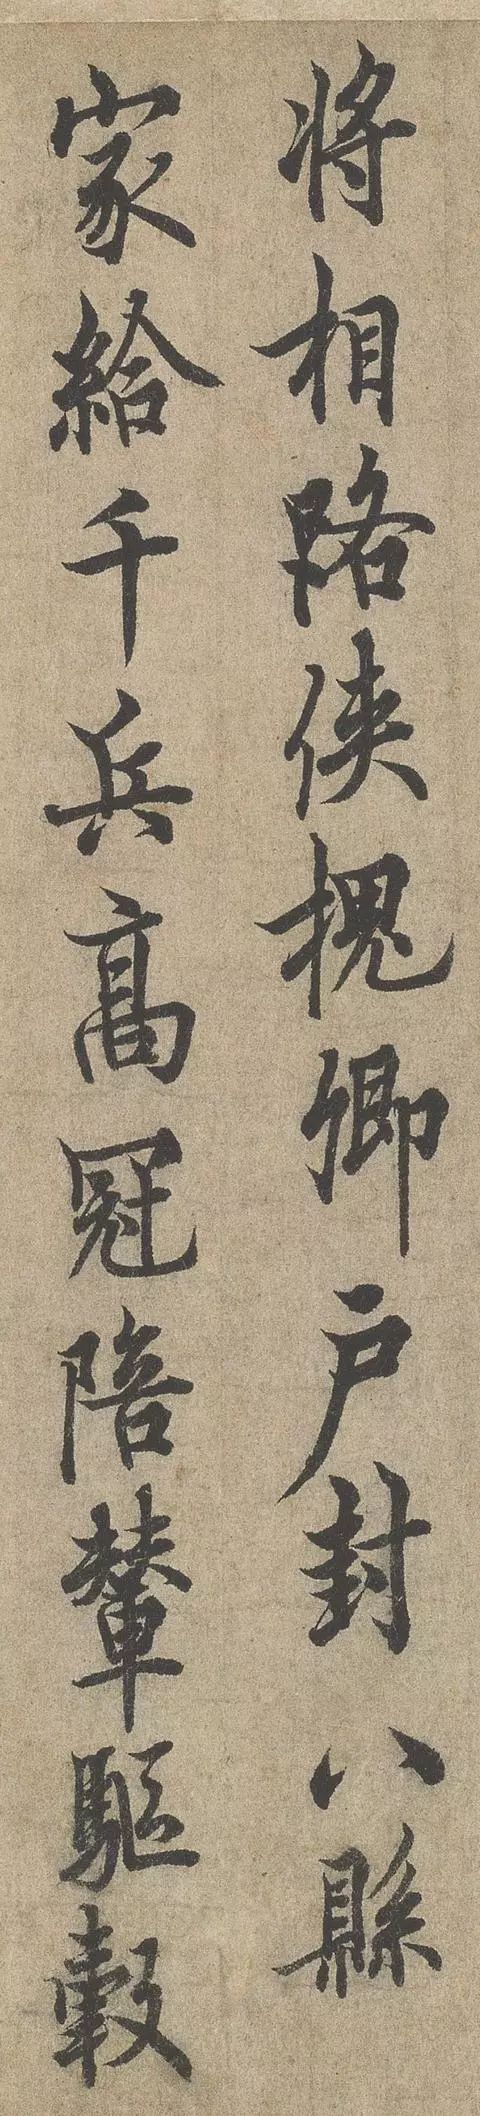 将相路俠槐卿户封八縣
家給千兵髙冠陪輦驅轂